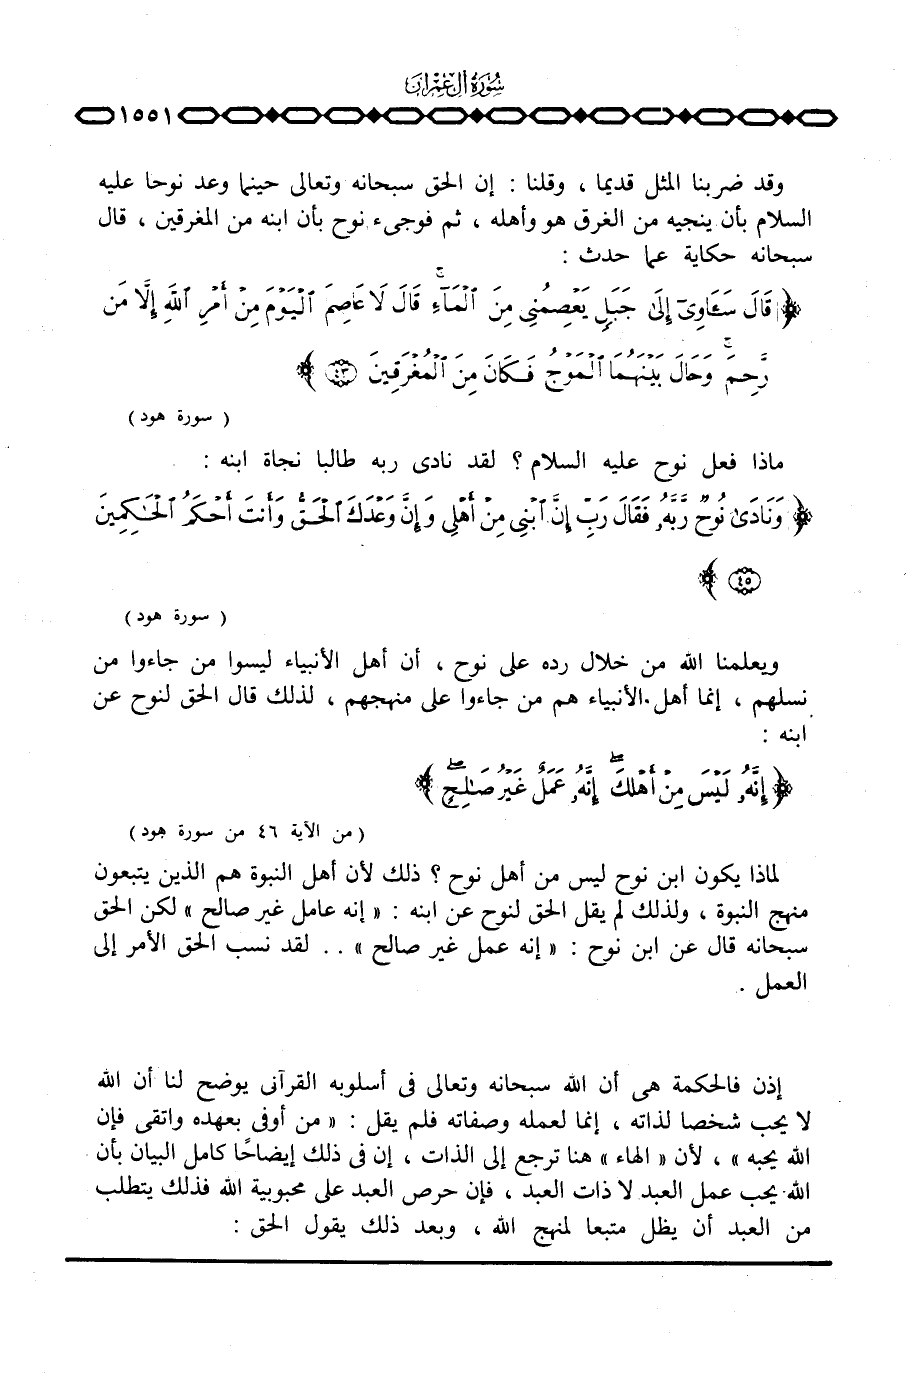 سُورَةُ آلِ عِمْرَانَ
١٥٥١
وقد ضربنا المثل قديما ، وقلنا : إن الحق سبحانه وتعالى حينما وعد نوحا عليه
السلام بأن ينجيه من الغرق هو وأهله ، ثم فوجىء نوح بأن ابنه من المغرقين ، قال
سبحانه حكاية عما حدث :
﴿ قَالَ سَـَٔاوِىٓ إِلَىٰ جَبَلٍ يَعْصِمُنِى مِنَ ٱلْمَآءِ ۚ قَالَ لَا عَاصِمَ ٱلْيَوْمَ مِنْ أَمْرِ ٱللَّهِ إِلَّا مَن
رَّحِمَ ۚ وَحَالَ بَيْنَهُمَا ٱلْمَوْجُ فَكَانَ مِنَ ٱلْمُغْرَقِينَ ٤٣ ﴾
( سورة هود )
ماذا فعل نوح عليه السلام ؟ لقد نادى ربه طالبا نجاة ابنه :
﴿ وَنَادَىٰ نُوحٌ رَّبَّهُۥ فَقَالَ رَبِّ إِنَّ ٱبْنِى مِنْ أَهْلِى وَإِنَّ وَعْدَكَ ٱلْحَقُّ وَأَنتَ أَحْكَمُ ٱلْحَـٰكِمِينَ
٤٥ ﴾
( سورة هود )
ويعلمنا الله من خلال رده على نوح ، أن أهل الأنبياء ليسوا من جاءوا من
نسلهم ، إنما أهل الأنبياء هم من جاءوا على منهجهم ، لذلك قال الحق لنوح عن
ابنه :
﴿ إِنَّهُۥ لَيْسَ مِنْ أَهْلِكَ ۖ إِنَّهُۥ عَمَلٌ غَيْرُ صَـٰلِحٍ ۖ ﴾
( من الآية ٤٦ من سورة هود )
لماذا يكون ابن نوح ليس من أهل نوح ؟ ذلك لأن أهل النبوة هم الذين يتبعون
منهج النبوة ، ولذلك لم يقل الحق لنوح عن ابنه : « إنه عامل غير صالح » لكن الحق
سبحانه قال عن ابن نوح : « إنه عمل غير صالح » .. لقد نسب الحق الأمر إلى
العمل .
إذن فالحكمة هى أن الله سبحانه وتعالى فى أسلوبه القرآنى يوضح لنا أن الله
لا يحب شخصا لذاته ، إنما لعمله وصفاته فلم يقل : « من أوفى بعهده واتقى فإن
الله يحبه » ، لأن « الهاء » هنا ترجع إلى الذات ، إن فى ذلك إيضاحًا كامل البيان بأن
الله يحب عمل العبد لا ذات العبد ، فإن حرص العبد على محبوبية الله فذلك يتطلب
من العبد أن يظل متبعا لمنهج الله ، وبعد ذلك يقول الحق :